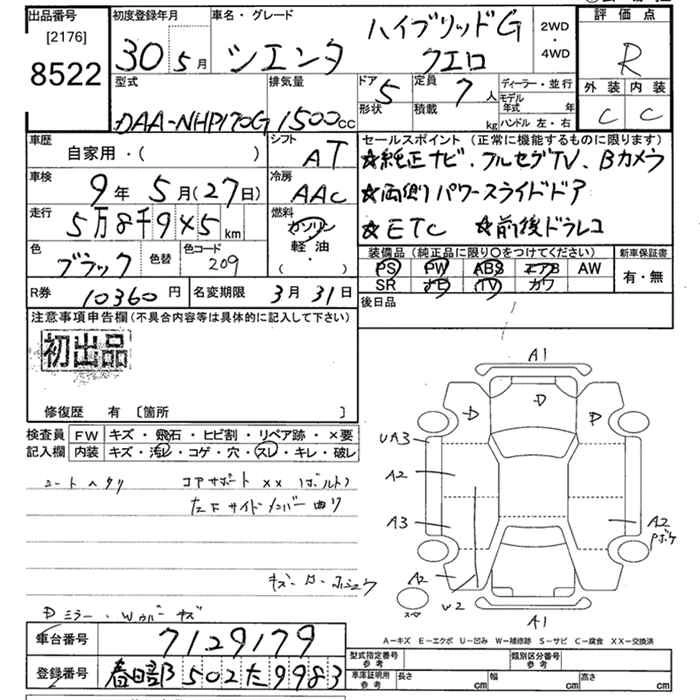 出品番号
[2176]
8522
初度登録年月
30 5月
車名・グレード
シエンタ
ハイブリッドG
クエロ
2WD
・
4WD
評価点
R
外装 内装
C C
型式
DAA-NHP170G
排気量
1500cc
ドア 5
形状
定員 7人
積載 kg
ディーラー・並行
モデル年式 年
ハンドル 左・右
車歴
自家用・( )
シフト
AT
車検
9年 5月(27日)
冷房
AAC
走行
5万8千945km
燃料
ガソリン
軽油
・( )
色
ブラック
色替
色コード
209
R券 10360円
名変期限 3月31日
セールスポイント (正常に機能するものに限ります)
☆純正ナビ、フルセグTV、Bカメラ
☆両側パワースライドドア
☆ETC ☆前後ドラレコ
装備品 (純正品に限り○をつけてください)
新車保証書
PS PW ABS エアB AW
SR ナビ TV カワ
有・無
後日品
注意事項申告欄(不具合内容等は具体的に記入して下さい)
初出品
修復歴 有 〔箇所 〕
検査員
記入欄
FW キズ・飛石・ヒビ割・リペア跡・×要
内装 キズ・汚レ・コゲ・穴・スレ・キレ・破レ
コアサポート XX (ボルト)
左下サイドメンバー曲り
Dミラー・Wカバーキズ
A1
D
D
D
UA3
A2
A3
A2
U2
A2
A1
A-キズ E-エクボ U-凹み W-補修跡 S-サビ C-腐食 XX-交換済
車台番号 7129179
登録番号 春日部 502 た 9983
型式指定番号
参考
類別区分番号
参考
車庫証明用
参考
長さ cm 幅 cm 高さ cm